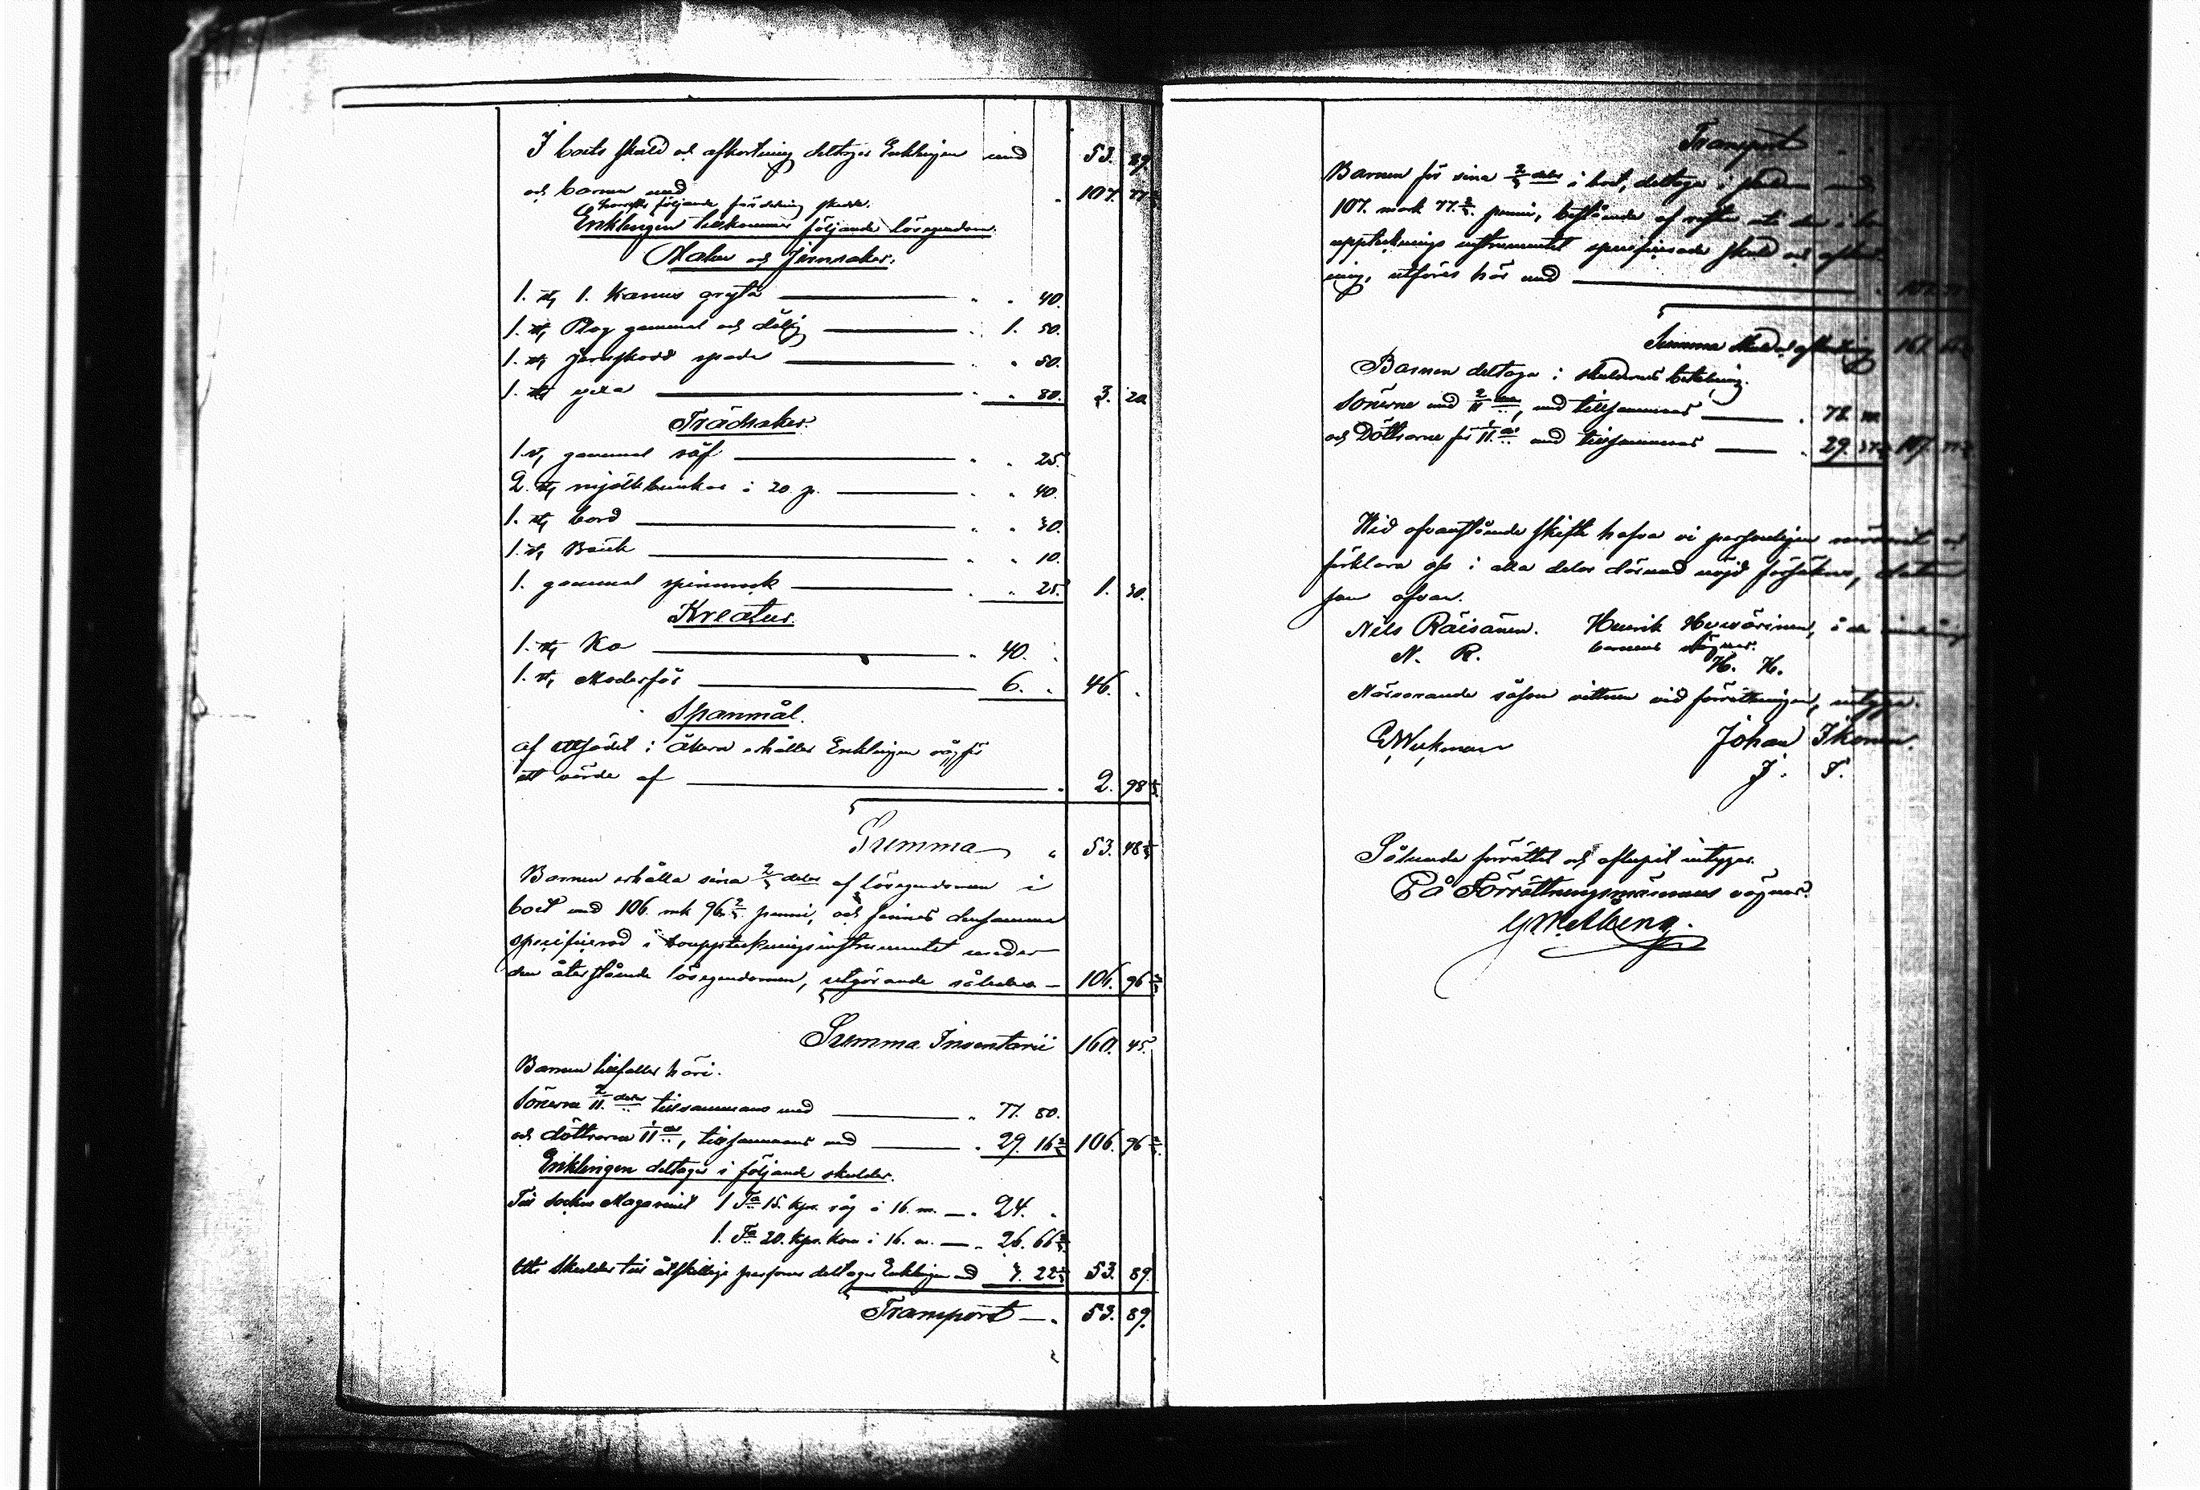 I boets skuld och afkortning deltager Enklingen med 53. 89.
och barnen med 107. 77 2/3
hvarefter följande fördelning skedde.
Enklingen tillkommer följande lösegendom.
Malm och Jernsaker.
1. st. 1. kannus gryta — " " 40.
1. st. Plog gammal och dålig — " 1. 50.
1. st. jernskodd spade — " " 50.
1. st. yxa — " " 80. 3. 20.
Trädsaker.
1 st. gammal såf — " " 25.
2. st. mjölkbunkar à 20. p. — " " 40.
1. st. bord — " " 30.
1. st. Bänk — " " 10.
1. gammal spinnrock — " " 25. 1. 30.
Kreatur.
1. st. Ko — " 40. "
1. st. Moderfår — 6. " 46. "
Spanmål.
af utsädet i åkern erhåller Enklingen råg för
ett värde af — " 2. 98 1/3
Summa " 53. 48 1/3
Barnen erhålla sina 2/3 delar af lösegendomen i
boet med 106. mk 96 2/3 penni, och finnes densamma
specificerad i bouppteckningsinstrumentet under
den återstående lösegendomen, utgörande således — 106. 96 2/3
Summa Inventarii 160. 45.
Barnen tillfaller häri.
Sönerne 2/11 delar tillsammans med — " 77. 80.
och döttrarna 1/11 del, tillsammans med — " 29. 16 2/3 106. 96 2/3
Enklingen deltager i följande skulder.
Till sockne Magasinet 1 T:a 15. kpr. råg à 16. m. — " 24. "
1. T:a 20. kpr. korn à 16. m. — " 26. 66 2/3
Uti skulder till åtskillige personer deltager Enklingen med 3. 22 1/3 53. 89.
Transport — " 53. 89.
Transport
Barnen för sina 2/3 delar i boet, deltaga i skulden med
107. mark 77 2/3 penni, bestående af resten uti den i bo
uppteknings instrumentet specificerade skuld och afkort
ning, utföres här med —
Summa skuld och afkortning 161.
Barnen deltaga i skuldernes betalning.
Sönerne med 2/11 delar, med tillsammans — " 78.
och Döttrarne för 1/11 del med tillsammans — " 29. 107.
Wid ofvanstående skifte hafva vi personligen närvarit och
förklara oss i alla delar dermed nöjd försäkras, datum
som ofvan.
Nils Räisänen. Henrik Hyvärinen, å de
N. R. barnens vägnar.
H. H.
Närvarande såsom vittnen vid förrättningen, intyga.
Johan Ikonen.
J. I.
Sålunda förrättet och aflupit intygar.
På Förrättningsmännens vägnar.